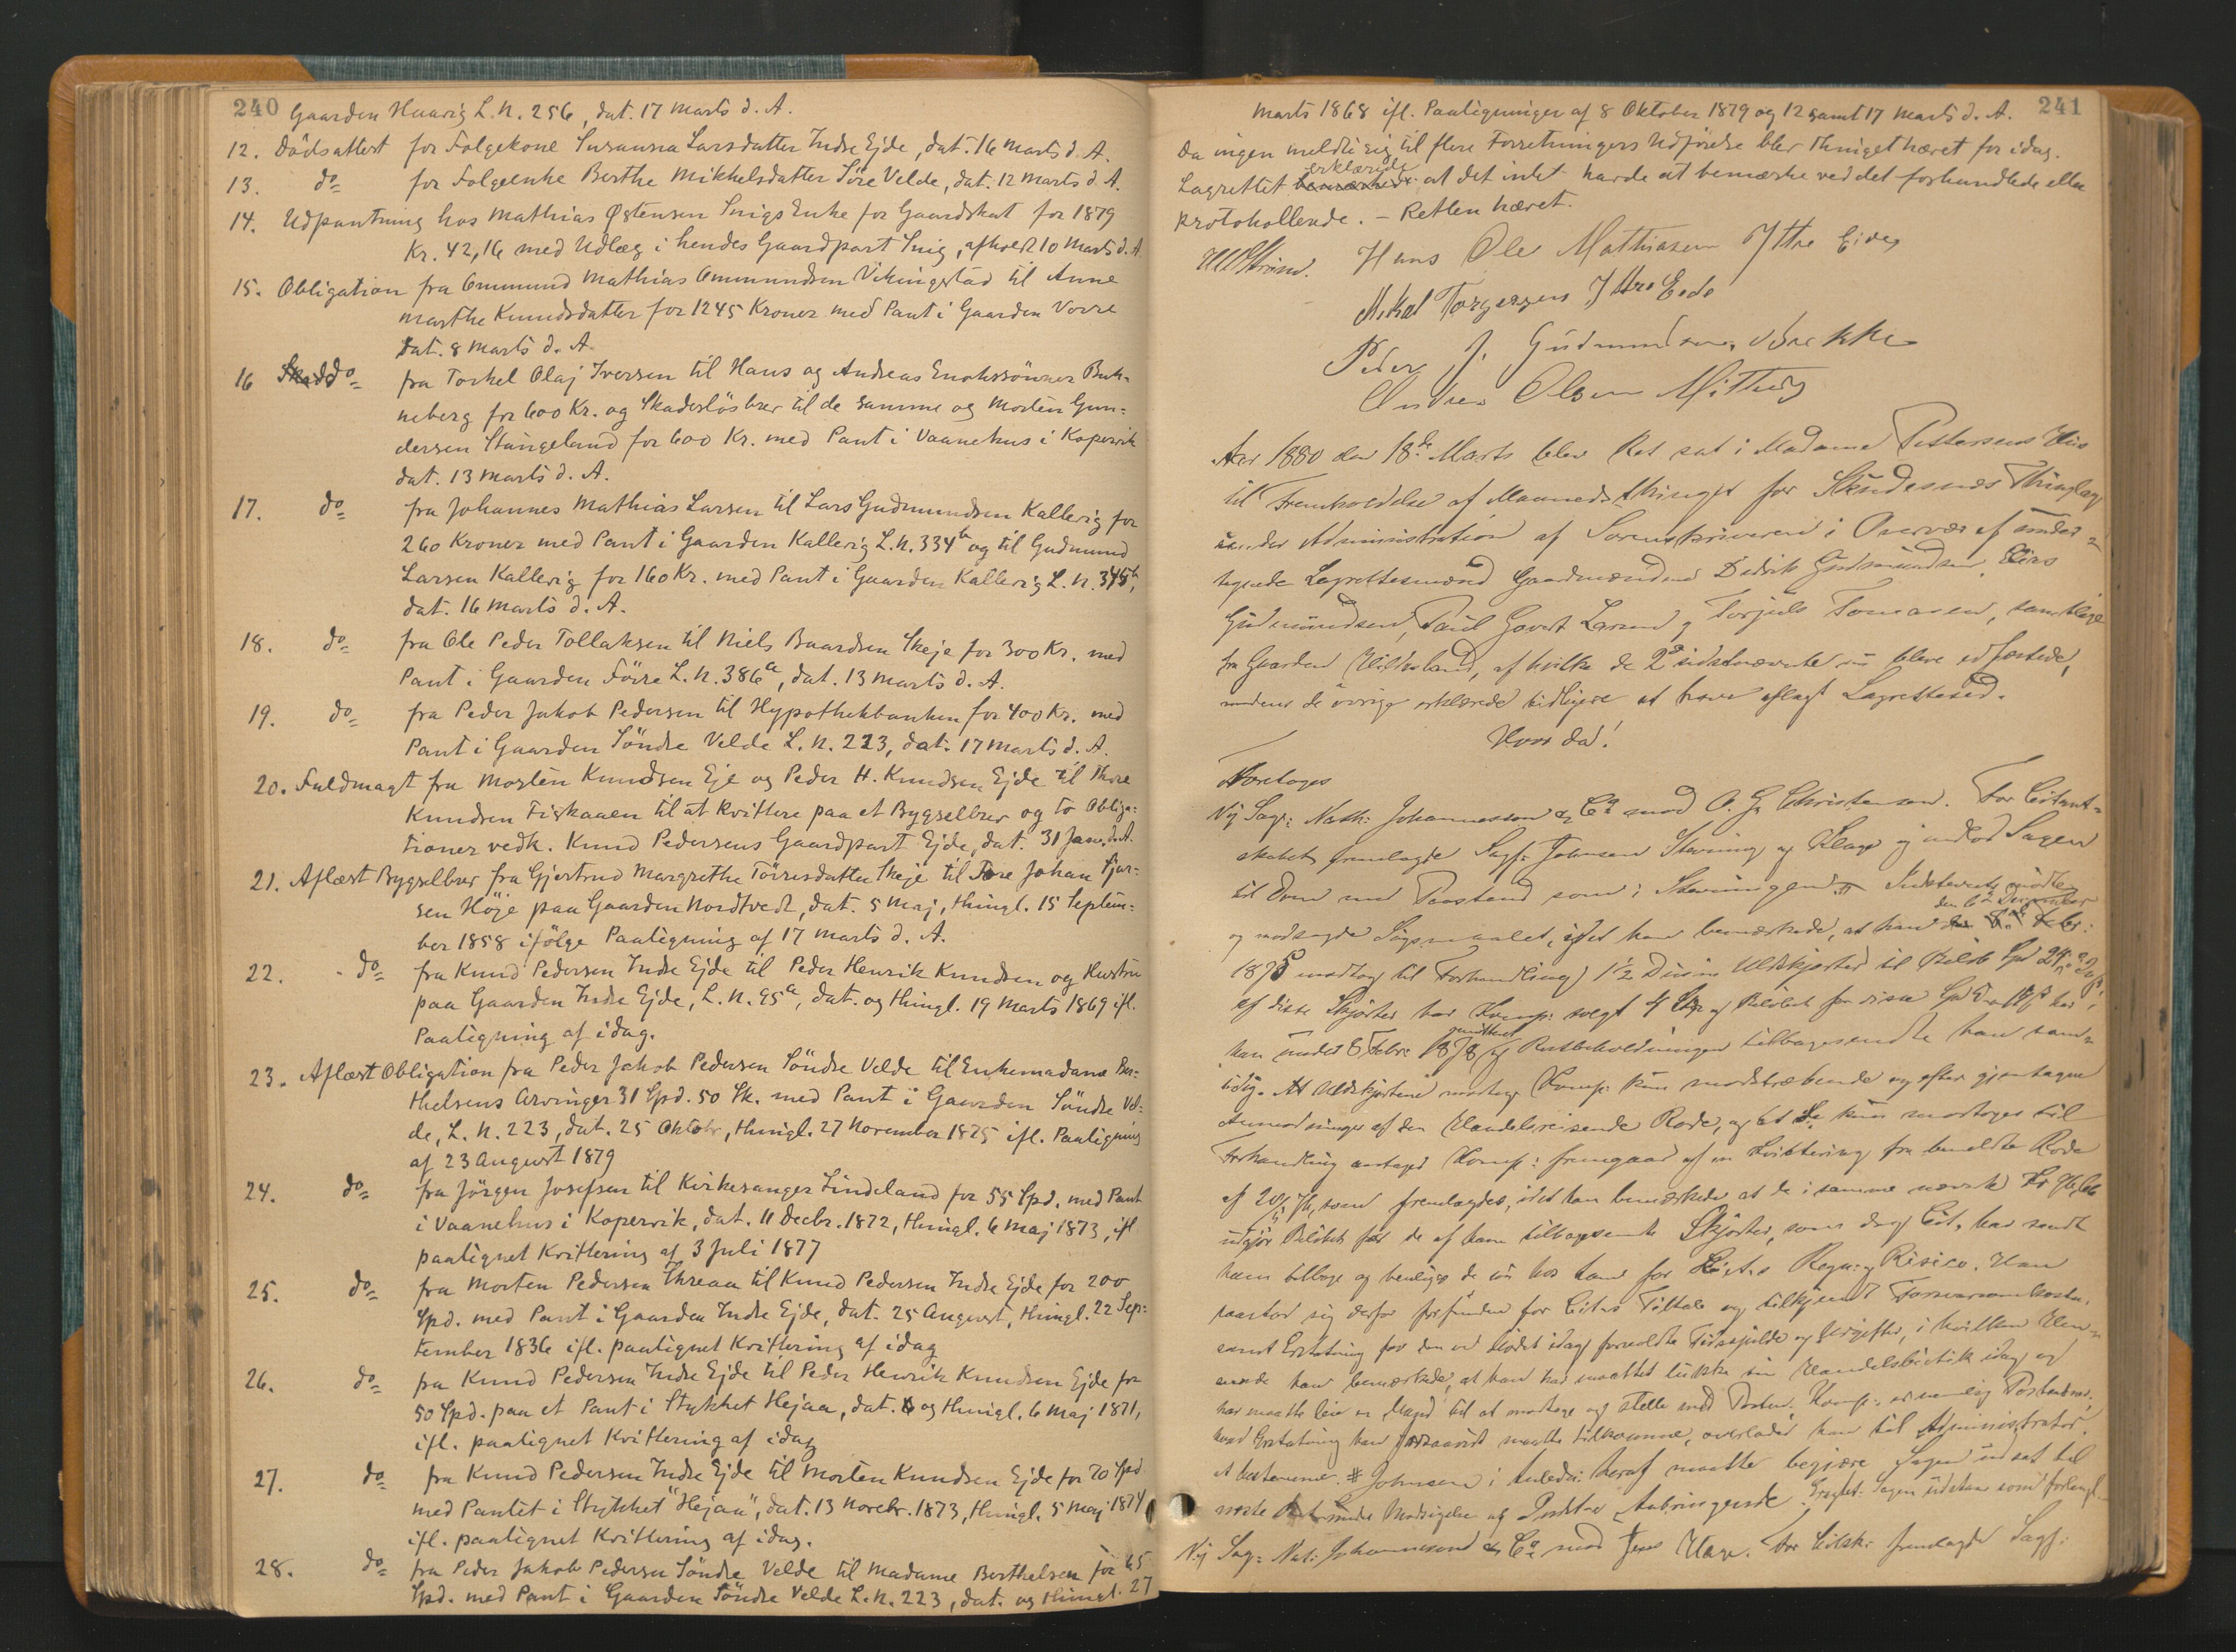 240 Gaarden Haavig L. N. 256, dat. 17 Marts d. A.
12. Dødsattest for Følgekone Susanna Larsdatter Indre Ejde, dat. 16 Marts d. A.
13. do for Følgeenke Berthe Mikkelsdatter Søre Velde, dat. 12 Marts d. A.
14. Udpantning hos Mathias Østensen Snigs Enke for Gaardskat for 1879
Kr. 42,16 med Udlæg i hendes Gaardpart Snig, afholdt 10 Marts d. A.
15. Obligation fra Ommund Mathias Ommundsen Vikingstad til Anne
Marthe Knudsdatter for 1245 Kroner med Pant i Gaarden Vorre
dat. 8 Marts d. A.
16 do fra Torkel Olaj Iversen til Hans og Andreas Enokssønner Buk-
neberg for 600 Kr. og Skadesløsbrev til de samme og Morten Gun-
dersen Stangeland for 600 Kr. med Pant i Vaanehus i Kopervik
dat. 13 Marts d. A.
17. do fra Johannes Mathias Larsen til Lars Gudmundsen Kallevig for
260 Kroner med Pant i Gaarden Kallevig L. N. 334b og til Gudmund
Larsen Kallevig for 160 Kr. med Pant i Gaarden Kallevig L. N. 345b,
dat. 16 Marts d. A.
18. do fra Ole Peder Tollaksen til Niels Baardsen Skeje for 300 Kr. med
Pant i Gaarden Førre L. N. 386a, dat. 13 Marts d. A.
19. do fra Peder Jakob Pedersen til Hypothekbanken for 400 Kr. med
Pant i Gaarden Søndre Velde L. N. 223, dat. 17 Marts d. A.
20. Fuldmagt fra Morten Knudsen Eje og Peder H. Knudsen Ejde til Thore
Knudsen Fiskaaen til at kvittere paa et Bygselbrev og to Obliga-
tioner vedk. Knud Pedersens Gaardpart Ejde, dat. 31 Jan. d. A.
21. Aflæst Bygselbrev fra Gjertrud Margrethe Tørresdatter Skeje til Tore Johan
sen Høje paa Gaarden Nordtvedt, dat. 5 Maj, thingl. 15 Septem-
ber 1858 ifølge Paategning af 17 Marts d. A.
22. do fra Knud Pedersen Indre Ejde til Peder Henrik Knudsen og Hustru
paa Gaarden Indre Ejde, L. N. 95a, dat. og thingl. 19 Marts 1869 ifl.
Paategning af idag.
23. Aflæst Obligation fra Peder Jakob Pedersen Søndre Velde til Enkemadame Ber-
thelsens Arvinger 31 Spd. 50 Sk. med Pant i Gaarden Søndre Vel-
de, L. N. 223, dat. 25 Oktobr, thingl. 27 November 1875 ifl. Paategning
af 23 August 1879
24. do fra Jørgen Josefsen til Kirkesanger Lindeland for 55 Spd. med Pant
i Vaanehus i Kopervik, dat. 11 Decbr. 1872, thingl. 6 Maj 1873, ifl.
paategnet Kvittering af 3 Juli 1877
25. do fra Morten Pedersen Threaa til Knud Pedersen Indre Ejde for 200
Spd. med Pant i Gaarden Indre Ejde, dat. 25 August, thingl. 22 Sep-
tember 1836 ifl. paategnet Kvittering af idag
26. do fra Knud Pedersen Indre Ejde til Peder Henrik Knudsen Ejde for
50 Spd. paa et Pant i Stykket Hejaa, dat. og thingl. 6 Maj 1871,
ifl. paategnet Kvittering af idag
27. do fra Knud Pedersen Indre Ejde til Morten Knudsen Ejde for 70 Spd
med Pantet i Stykket "Hejaa", dat. 13 Novebr. 1873, thingl. 5 Maj 1874
ifl. paategnet Kvittering af idag.
28. do fra Peder Jakob Pedersen Søndre Velde til Madame Berthelsen for 65
Spd. med Pant i Gaarden Søndre Velde L. N. 223, dat. og thingl. 27
Marts 1868 ifl. Paategninger af 8 Oktober 1879 og 12 samt 17 Marts d. A. 241
Da ingen meldte sig til flere Forretningers Udførelse blev Thinget hævet for idag.
Lagrettet erklærede at det intet havde at bemærke ved det forhandlede eller
protokollerede. - Retten hævet.
Hans Ole Mathiasen Ittre Eide
Mikal Torgersen Ittre Eede
Peder J. Gudmundsen
Andreas Olsen
Aar 1880 den 18de Marts blev Ret sat i Madame Pettersens Hus
til Fremholdelse af Maanedsthinget for Skudesnæs Thinglag
under Administration af Sorenskriveren i Overvær af under-
tegnede Lagrettesmænd Gaardmændene Didrik Gudmundsen, Elias
Gudmundsen, Paul Govert Larsen og Torjuls Tomasen, samtlige
fra Gaarden Hillesland, af hvilke de 2de sidstnævnte nu bleve edfæstede,
medens de øvrige erklærede tidligere at have aflagt Lagrettesed.
Hvor da!
Foretoges
Ny Sag: Nath: Johannesson & Co mod O. G. Christensen. For Citant-
skabet fremlagde Sagf. Johnsen Stevning og Klage og indlod Sagen
til Dom med Paastand som i Stevningen. Indstevnte mødte
og modsagde Søgsmaalet, idet han bemærkede, at han den 6te December
1875 modtog til Forhandling 1½ Dusin Uldskjorter til Beløb Spd 24
af disse Skjorter har Komp: solgt 4 og Beløbet for disse har
han under 8 Febr. 1878 og Restbeholdningen tilbagesendte han sam-
tidig. At Uldskjorterne modtog Komp: kun modstræbende og efter gjentagne
Anmodninger af den Handelsreisende Rode, og at de kun modtoges til
Forhandling Komp: fremgaar af en Kvittering fra bemeldte Rode
af som fremlagdes, idet han bemærkede at de i samme nævnte
udgjør Beløbet for de af ham tilbagesendte Skjorter, som dog Cit. har sendt
ham tilbage og beligge de nu hos ham for Cit.s Regn. og Risico. Han
paastod sig derfor frifunden for Cit.s Tiltale og tilkjendt Forsvarsomkostn.
samt Erstatning for den ved Mødet idag forvoldte Tidsspilde og Udgifter, i hvilken Hen-
seende han bemærkede, at han har maattet lukke sin Handelsbutik idag og
har maatte leie en Mand til at modtage og stelle med Posten. Komp: er nemlig Postaabner,
hvad Erstatning han forsaavidt maatte tilkomme, overlader han til Administrator
at bestemme. Johnsen i Anledn: heraf maatte begjære Sagen udsat til
næste under Modsigelse og Protest Anbringende. Sagen udsattes som forlangt.
Ny Sag: Nat: Johannesson & Co mod Jens Hage. For Citsk: fremlagde Sagf: